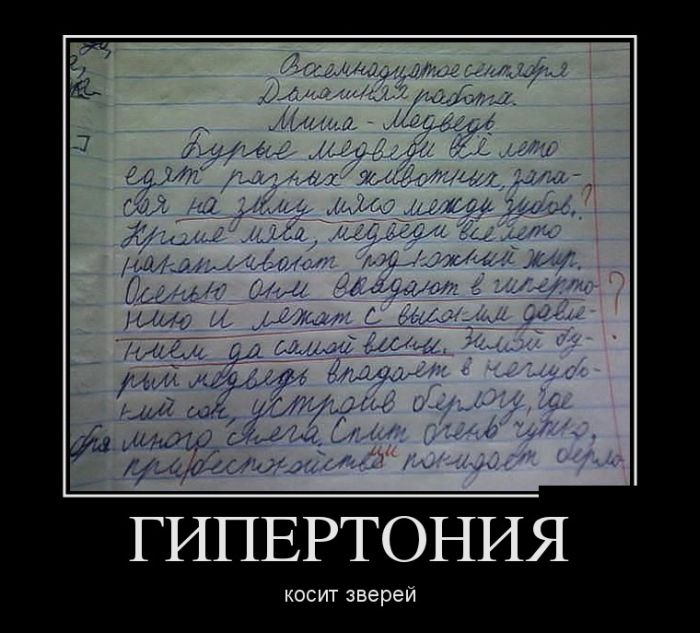 Восемнадцатое сентября
Домашняя работа.
Миша - Медведь
Бурые медведи всё лето
едят разных животных, запа-
сая на зиму мясо между зубов. ?
Кроме мяса, медведи всё лето
накапливают подкожный жир.
Осенью они впадают в гиперто-
нию и лежат с высоким давле- ?
нием до самой весны. Зимой бу-
рый медведь впадает в неглубо-
кий сон, устроив берлогу, где
много снега. Спит очень чутко,
при беспокойстве покидает берло
ГИПЕРТОНИЯ
косит зверей